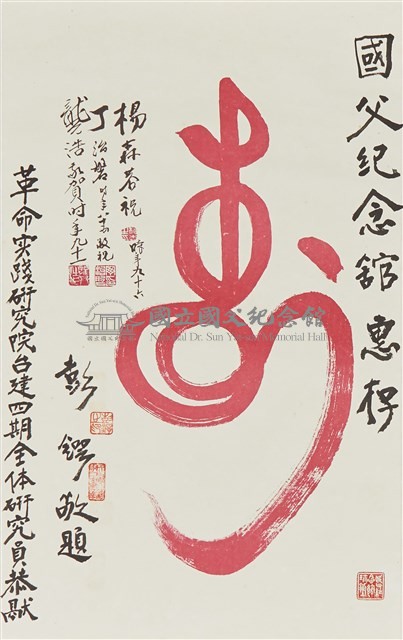 國父纪念舘 惠存
壽
楊森恭祝 時年九十六
丁治磐 敬祝
龔浩敬賀时年九十一
彭鍔敬題
革命实践研究院台建四期全体研究員恭献
國立國父紀念館
National Dr. Sun Yat-sen Memorial Hall